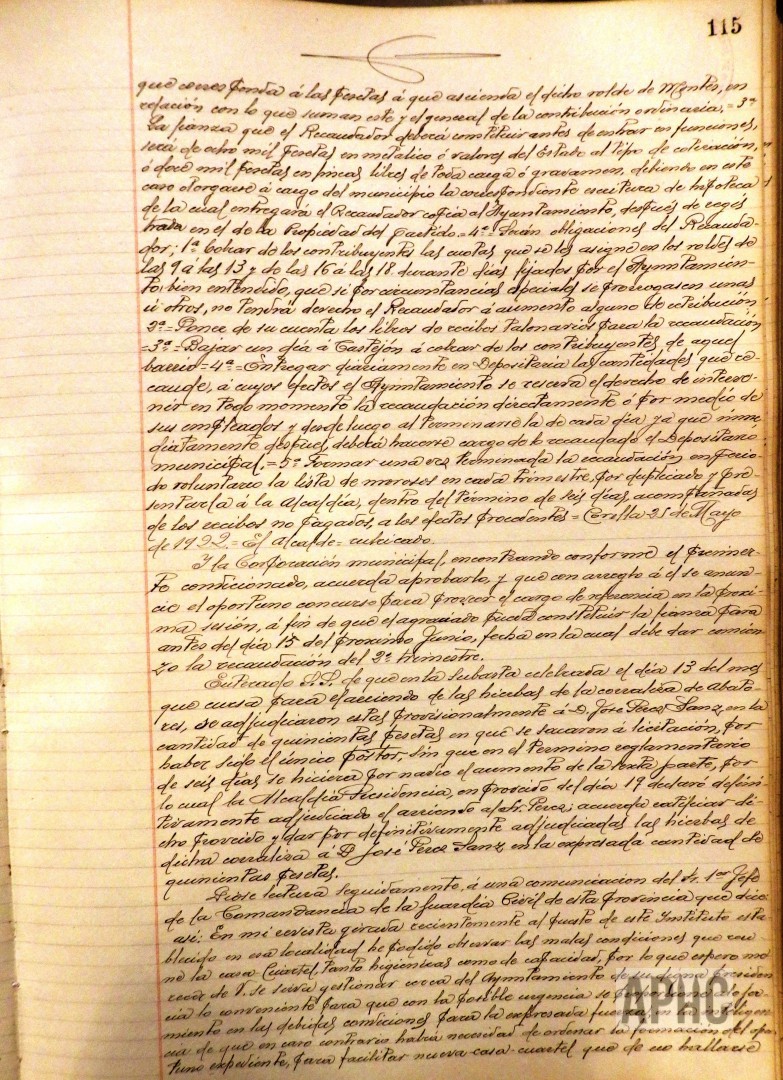 115
que corresponda á las pesetas á que ascienda el dicho rolde de Montes, en
relación con lo que suman este y el general de la contribución ordinaria. = 3ª
La fianza que el Recaudador deberá constituir antes de entrar en funciones,
será de ocho mil pesetas en metalico ó valores del Estado al tipo de cotización,
ó doce mil pesetas en fincas libres de toda carga ó gravamen, debiendo en este
caso otorgarse á cargo del municipio la correspondiente escritura de hipoteca
de la cual entregará el Recaudador copia al Ayuntamiento, después de regis
trada en el de la Propiedad del partido. = 4ª = Serán obligaciones del Recauda-
dor; 1ª Cobrar de los contribuyentes las cuotas que se les asigne en los roldes de
las 9 á las 13 y de las 16 á las 18 durante días fijados por el Ayuntamien-
to, bien entendido, que si por circunstancias especiales se prorrogasen unas
ú otros, no tendrá derecho el Recaudador á aumento alguno de retribución
2ª = Poner de su cuenta los libros de recibos talonarios para la recaudación
= 3ª = Bajar un día á Castejón á cobrar de los contribuyentes de aquel
barrio = 4ª = Entregar diariamente en Depositaria las cantidades que re-
caude, á cuyos efectos el Ayuntamiento se reserva el derecho de interve-
nir en todo momento la recaudación directamente ó por medio de
sus empleados y desde luego al terminarse la de cada día ya que inme
diatamente después, deberá hacerse cargo de lo recaudado el Depositario
municipal. = 5ª Formar una vez terminada la recaudación en perio-
do voluntario la lista de morosos en cada trimestre, por duplicado y pre-
sentarla á la Alcaldía, dentro del término de seis días, acompañadas
de los recibos no pagados, a los efectos procedentes = Corella 25 de Mayo
de 1922. = El Alcalde = rubricado.
Y la Corporación municipal, encontrando conforme el preinser-
to condicionado, acuerda aprobarlo, y que con arreglo á él se anun-
cie el oportuno concurso para proveer el cargo de referencia en la proxi-
ma sesión, á fin de que el agraciado pueda constituir la fianza para
antes del día 15 del proximo Junio, fecha en la cual debe dar comien-
zo la recaudación del 2º trimestre.
Enterado S.S. de que en la subasta celebrada el día 13 del mes
que cursa para el arriendo de las hierbas de la corraliza de Abato-
res, se adjudicaron estas provisionalmente á D. José Perez Sanz, en la
cantidad de quinientas pesetas en que se sacaron á licitación, por
haber sido el único postor, sin que en el termino reglamentario
de seis días se hiciera por nadie el aumento de la sexta parte, por
lo cual la Alcaldía Presidencia, en proveido del día 19 declaró defini-
tivamente adjudicado el arriendo al Sr. Perez; acuerda ratificar di-
cho proveido y dar por definitivamente adjudicadas las hierbas de
dicha corraliza á D. José Perez Sanz en la expresada cantidad de
quinientas pesetas.
Diose lectura seguidamente, á una comunicacion del Sr. 1er Jefe
de la Comandancia de la Guardia Civil de esta Provincia que dice
así: En mi revista girada recientemente al puesto de este Instituto esta
blecido en esa localidad he podido observar las malas condiciones que reu
ne la casa Cuartel, tanto higienicas como de capacidad, por lo que espero me
recer de V. se sirva gestionar cerca del Ayuntamiento de su digna presiden
cia lo conveniente para que con la posible urgencia se
miento en las debidas condiciones para la expresada fuerza, en la inteligen
cia de que en caso contrario habría necesidad de ordenar la formación del opor
tuno expediente, para facilitar nueva casa-cuartel que de no hallarse
APHC